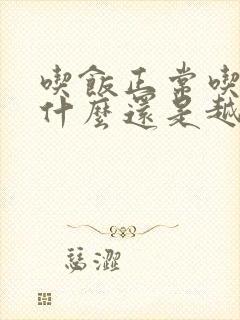 喫飯正常喫
什麼還是越
瑟澀